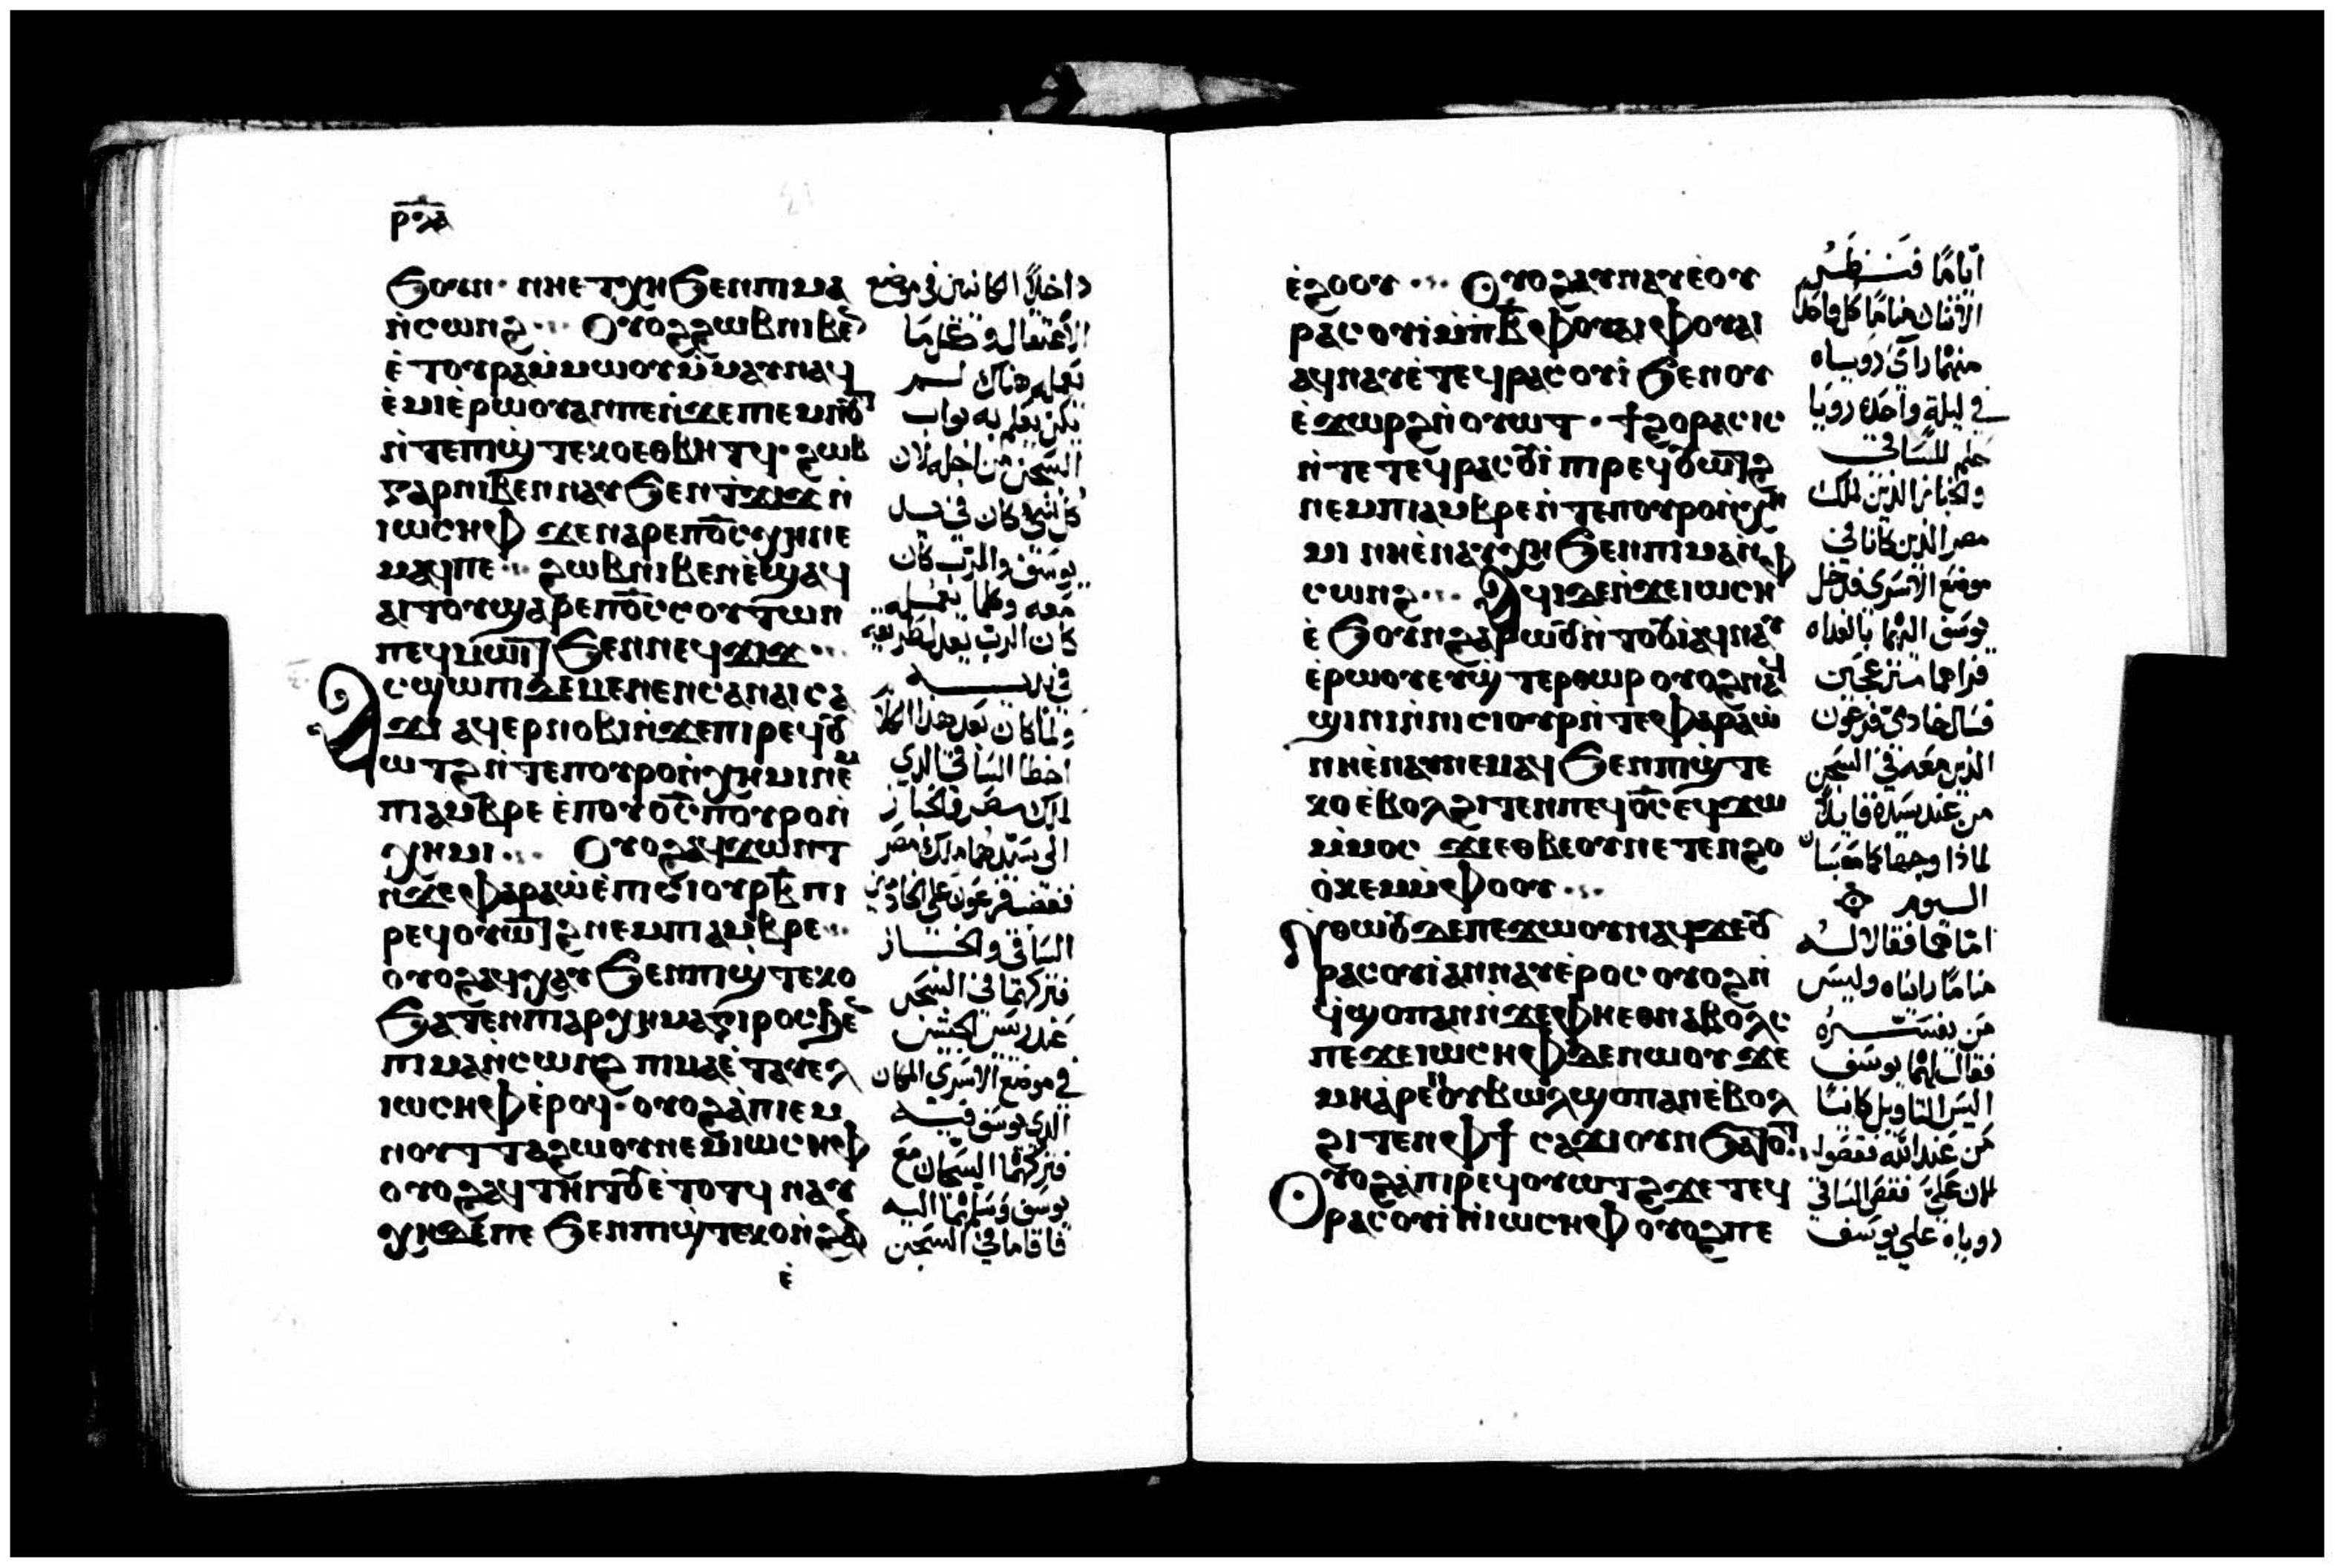 ⲣⲝⲁ
ϧⲟⲩⲛ · ⲛⲏⲉⲧⲭⲏϧⲉⲛⲡⲓⲙⲁ
ⲛ̀ⲥⲱⲛϩ ⲟⲩⲟϩϩⲱⲃⲛⲓⲃⲉⲛ
ⲉ̀ⲧⲟⲩⲣⲁⲙ̀ⲙⲱⲟⲩⲙ̀ⲙⲁⲩⲛⲁϥ
ⲉ̀ⲙⲓⲉ̀ⲣⲱⲟⲩⲁⲛⲡⲉⲛ̀ϫⲉⲡⲉⲙⲛⲟⲩ
ⲛ̀ⲧⲉⲡⲓϣ̀ⲧⲉⲕⲟⲉⲑⲃⲏⲧϥ · ϩⲱⲃ
ⲅⲁⲣⲛⲓⲃⲉⲛⲛⲁⲩϧⲉⲛⲧ̀ϫⲓϫⲛ̀
ⲓⲱⲥⲏⲫ ϫⲉⲛⲁⲣⲉⲡⲟ̅ⲥ̅ⲭⲏⲛⲉ
ⲙⲁϥⲡⲉ ϩⲱⲃⲛⲓⲃⲉⲛⲉ̀ϣⲁϥ
ⲁⲓⲧⲟⲩϣⲁⲣⲉⲡⲟ̅ⲥ̅ⲥⲟⲩⲧⲱⲛ
ⲡⲉϥⲙⲱⲓⲧ ϧⲉⲛⲛⲉϥϫⲓϫ
ⲁⲥϣⲱⲡⲓⲇⲉⲙⲉⲛⲉⲛⲥⲁⲛⲁⲓⲥⲁ
ϫⲓ ⲁϥⲉⲣⲛⲟⲃⲓⲛ̀ϫⲉⲡⲓⲣⲉϥⲟⲩ
ⲱⲧϩⲛ̀ⲧⲉⲡⲟⲩⲣⲟⲛ̀ⲭⲏⲙⲓⲛⲉⲙ
ⲡⲓⲁⲙⲃⲣⲉ ⲉ̀ⲡⲟⲩⲟ̅ⲥ̅ⲡⲟⲩⲣⲟⲛ̀
ⲭⲏⲙⲓ ⲟⲩⲟϩⲁϥϫⲱⲛⲧ
ⲛ̀ϫⲉⲫⲁⲣⲁⲱ̀ⲉ̀ⲡⲓⲥⲓⲟⲩⲣⲃ̅ⲡⲓ
ⲣⲉϥⲟⲩⲱⲧϩⲛⲉⲙⲡⲓⲁⲙⲃⲣⲉ
ⲟⲩⲟϩⲁϥⲭⲁⲩϧⲉⲛⲡⲓϣ̀ⲧⲉⲕⲟ
ϧⲁⲧⲉⲛⲡⲓⲁⲣⲭⲏⲙⲁⲅⲓⲣⲟⲥϧⲉⲛ
ⲡⲓⲙⲁⲛ̀ⲥⲱⲛϩ ⲡⲓⲙⲁⲉ̀ⲧⲁⲩⲉⲗ
ⲓⲱⲥⲏⲫⲉ̀ⲣⲟϥ · ⲟⲩⲟϩⲁ̀ⲡⲓⲉⲙ
ⲛⲟⲩⲧⲧⲁϩⲱⲟⲩⲛⲉⲙⲓⲱⲥⲏⲫ
ⲟⲩⲟϩⲁϥⲧⲏⲓⲧⲟⲩⲉ̀ⲧⲟⲧϥ ⲛⲁⲩ
ⲭⲏⲇⲉⲡⲉ ϧⲉⲛⲡⲓϣ̀ⲧⲉⲕⲟⲛ̀ϩⲁⲛ
ⲉ̀
داخلاً الكائنين في موضع
الاعتقال وكلما
يعمله هناك لم
يكن يعلم به بواب
السجن من اجله لان
كل شي كان في يد
يوسف والرب كان
معه وكلما يفعله
كان الرب يعدل طريقه
في يديه
ولما كان بعد هذا الكلام
اخطا الساقي الذي
لملك مصر والخباز
الي سيدهما ملك مصر
فغضب فرعون علي الخادمين
الساقي والخباز
فتركهما في السجن
عند ريس الجيش
في موضع الاسري المكان
الذي يوسف فيه
فتركهما السجان مع
يوسف وسلمهما اليه
فاقاما في السجن
ⲉ̀ϩⲟⲟⲩ ⲟⲩⲟϩⲁⲩⲛⲁⲩⲉ̀ⲟⲩ
ⲣⲁⲥⲟⲩⲓⲙ̀ⲡⲃ̅ⲫⲟⲩⲁⲓⲫⲟⲩⲁⲓ
ⲁϥⲛⲁⲩⲉ̀ⲧⲉϥⲣⲁⲥⲟⲩⲓ ϧⲉⲛⲟⲩ
ⲉ̀ϫⲱⲣϩⲛ̀ⲟⲩⲱⲧ · ϯϩⲟⲣⲁⲥⲓⲥ
ⲛ̀ⲧⲉⲧⲉϥⲣⲁⲥⲟⲩⲓ ⲡⲓⲣⲉϥⲟⲩⲱⲧϩ
ⲛⲉⲙⲡⲓⲁⲙⲃⲣⲉⲛ̀ⲧⲉⲡⲟⲩⲣⲟⲛ̀ⲭⲏ
ⲙⲓ ⲛⲏⲉ̀ⲛⲁⲩⲭⲏϧⲉⲛⲡⲓⲙⲁⲛ̀
ⲥⲱⲛϩ ⲁϥⲓⲇⲉⲛ̀ϫⲉⲓⲱⲥⲏⲫ
ⲉ̀ϧⲟⲩⲛϩⲁⲣⲱⲟⲩⲛ̀ⲧⲟⲟⲩⲓⲁϥⲛⲁⲩ
ⲉ̀ⲣⲱⲟⲩⲉⲩϣ̀ⲧⲉⲣⲑⲱⲣ ⲟⲩⲟϩⲛⲁϥ
ϣⲓⲛⲓⲛ̀ⲛⲓⲥⲓⲟⲩⲣⲛ̀ⲧⲉⲫⲁⲣⲁⲱ̀
ⲛⲏⲉ̀ⲛⲁⲩⲛⲉⲙⲁϥϧⲉⲛⲡⲓϣ̀ⲧⲉ
ⲕⲟⲉ̀ⲃⲟⲗϩⲓⲧⲉⲛⲡⲉϥⲟ̅ⲥ̅ⲉϥϫⲱ
ⲙ̀ⲙⲟⲥ ϫⲉⲉⲑⲃⲉⲟⲩⲛⲉⲧⲉⲛϩⲟ
ⲟ̀ⲕⲉⲙⲙ̀ⲫⲟⲟⲩ
ⲛ̀ⲑⲱⲟⲩⲇⲉⲡⲉϫⲱⲟⲩⲛⲁϥϫⲉⲟⲩ
ⲣⲁⲥⲟⲩⲓⲁⲛⲛⲁⲩⲉ̀ⲣⲟⲥ ⲟⲩⲟϩⲛ̀
ϥϣⲟⲡⲁⲛⲛ̀ϫⲉⲫⲏⲉⲑⲛⲁⲃⲟⲗⲥ
ⲡⲉϫⲉⲓⲱⲥⲏⲫⲇⲉⲛⲱⲟⲩ ϫⲉ
ⲙⲏⲁ̀ⲣⲉⲡⲟⲩⲃⲱⲗϣⲟⲡⲁⲛⲉ̀ⲃⲟⲗ
ϩⲓⲧⲉⲛⲫϯ ⲥⲁϫⲓⲟⲩⲛϧⲁⲧⲟⲧ
ⲟⲩⲟϩⲁ̀ⲡⲓⲣⲉϥⲟⲩⲱⲧϩϫⲉⲧⲉϥ
ⲣⲁⲥⲟⲩⲓⲛ̀ⲓⲱⲥⲏⲫ ⲟⲩⲟϩⲡⲉ
اياماً فنظر
الاثنان مناماً كل واحد
منهما راي روياه
في ليلة واحدة رويا
حلم للساقي
والخباز الذين لملك
مصر الذين كانا في
موضع الاسري فدخل
يوسف اليهما بالغداه
فراهما منزعجين
فسال خادمي فرعون
الذين معه في السجن
من عند سيده قايلاً
لماذا وجهاكما معبسان
اليوم
اما هما فقالا له
مناماً رايناه وليس
من يفسره
فقال لهما يوسف
اليس التاويل كاينًا
من عند الله فقصوا
لان علي فقص الساقي
روياه علي يوسف